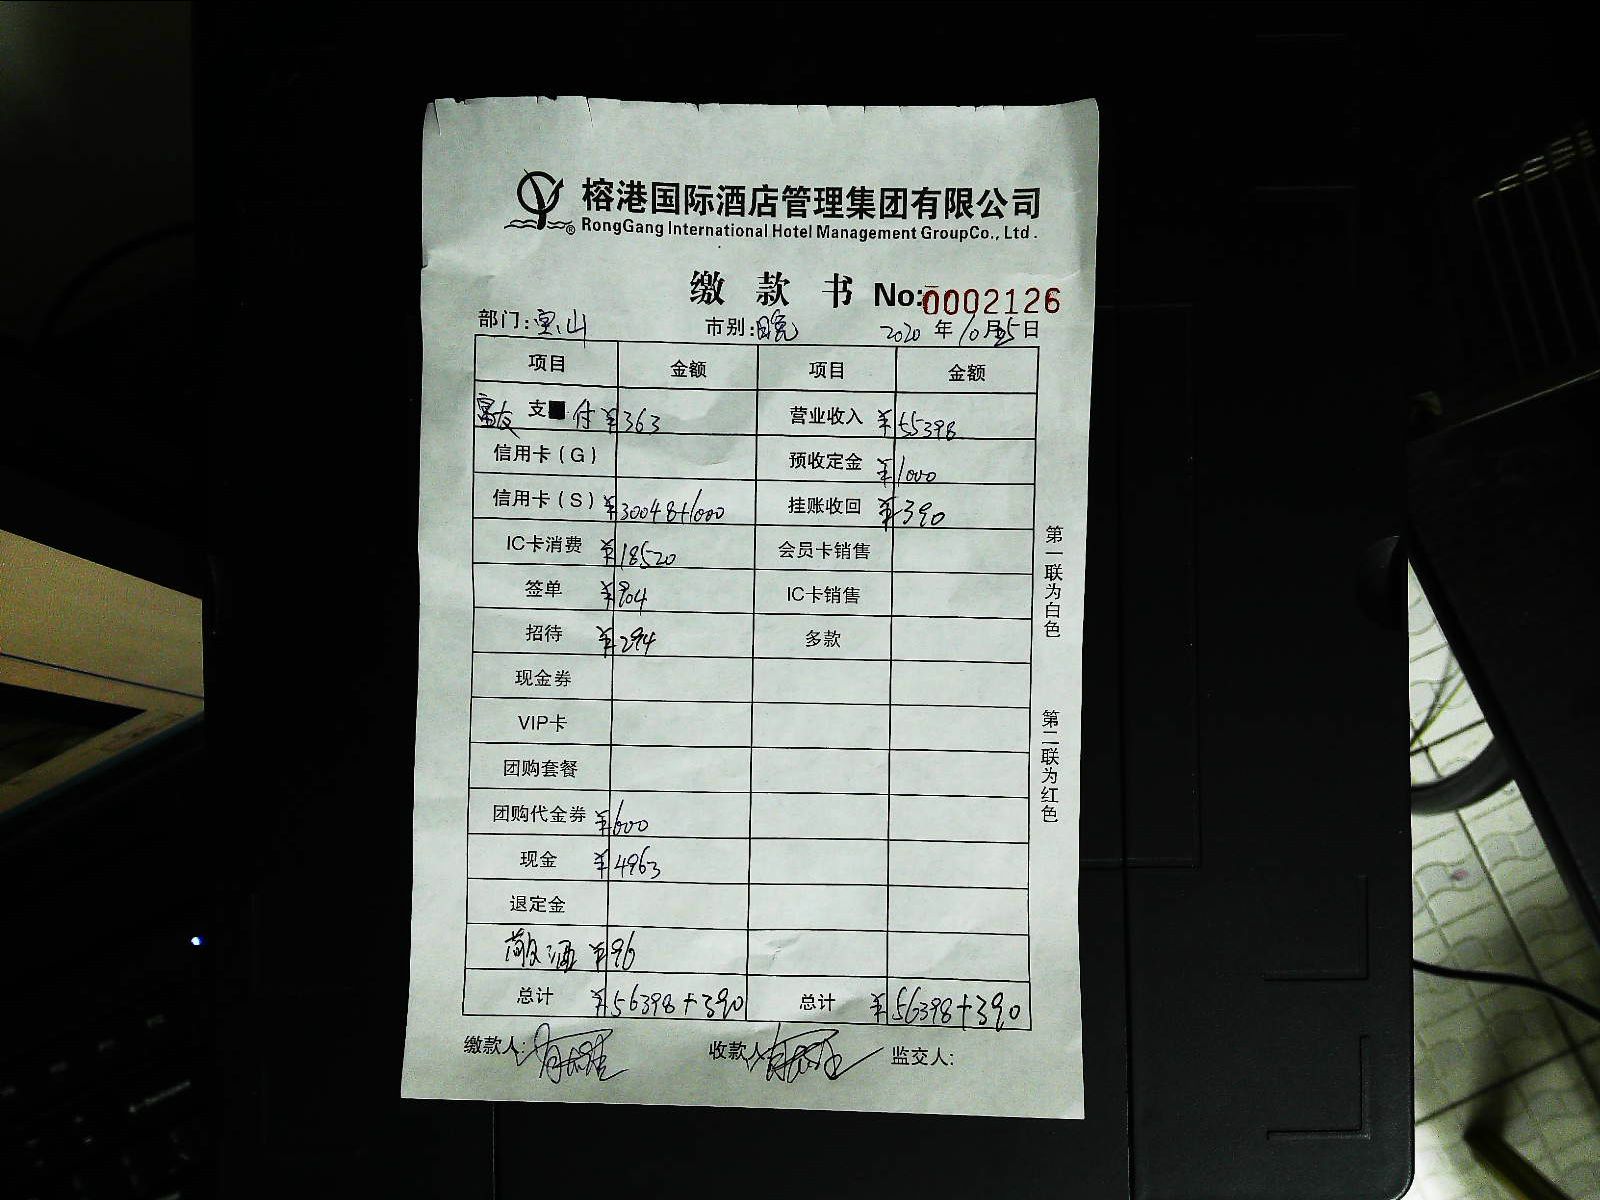 榕港国际酒店管理集团有限公司
RongGang International Hotel Management GroupCo., Ltd.
缴款书 No:0002126
部门:宝山 市别:晚 2020年10月25日
项目 金额 项目 金额
富友 支付 ¥363 营业收入 ¥55398
信用卡(G) 预收定金 ¥1000
信用卡(S) ¥30048+1000 挂账收回 ¥390
IC卡消费 ¥18520 会员卡销售
签单 ¥904 IC卡销售
招待 ¥294 多款
现金券
VIP卡
团购套餐
团购代金券 ¥600
现金 ¥4963
退定金
酒 ¥96
总计 ¥56398+390 总计 ¥56398+390
缴款人: 收款人 监交人:
第一联为白色
第二联为红色